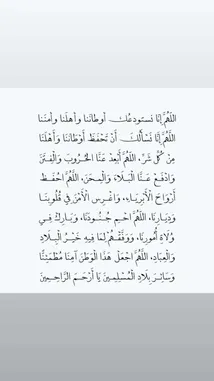 اللَّهُمَّ إِنَّا نَستودِعُكَ أوطاننا وأهلَنا وأَمننا
اللَّهُمَّ إِنَّا نَسْأَلُكَ أَنْ تَحْفَظَ أَوْطَانَنَا وَأَهْلَنَا
مِنْ كُلِّ شَرٍّ، اللَّهُمَّ أَبْعِدْ عَنَّا الْحُرُوبَ وَالْفِتَنَ
وَادْفَعْ عَنَّا الْبَلَاءَ وَالْمِحَنَ، اللَّهُمَّ احْفَظْ
أَرْوَاحَ الْأَبْرِيَاءِ، وَاغْرِسِ الْأَمْنَ فِي قُلُوبِنَا
وَدِيَارِنَا، اللَّهُمَّ احْمِ جُنُودَنَا، وَبَارِكْ فِي
وُلَاةِ أُمُورِنَا، وَوَفِّقْهُمْ لِمَا فِيهِ خَيْرُ الْبِلَادِ
وَالْعِبَادِ، اللَّهُمَّ اجْعَلْ هَذَا الْوَطَنَ آمِنًا مُطْمَئِنًّا
وَسَائِرَ بِلَادِ الْمُسْلِمِينَ يَا أَرْحَمَ الرَّاحِمِينَ